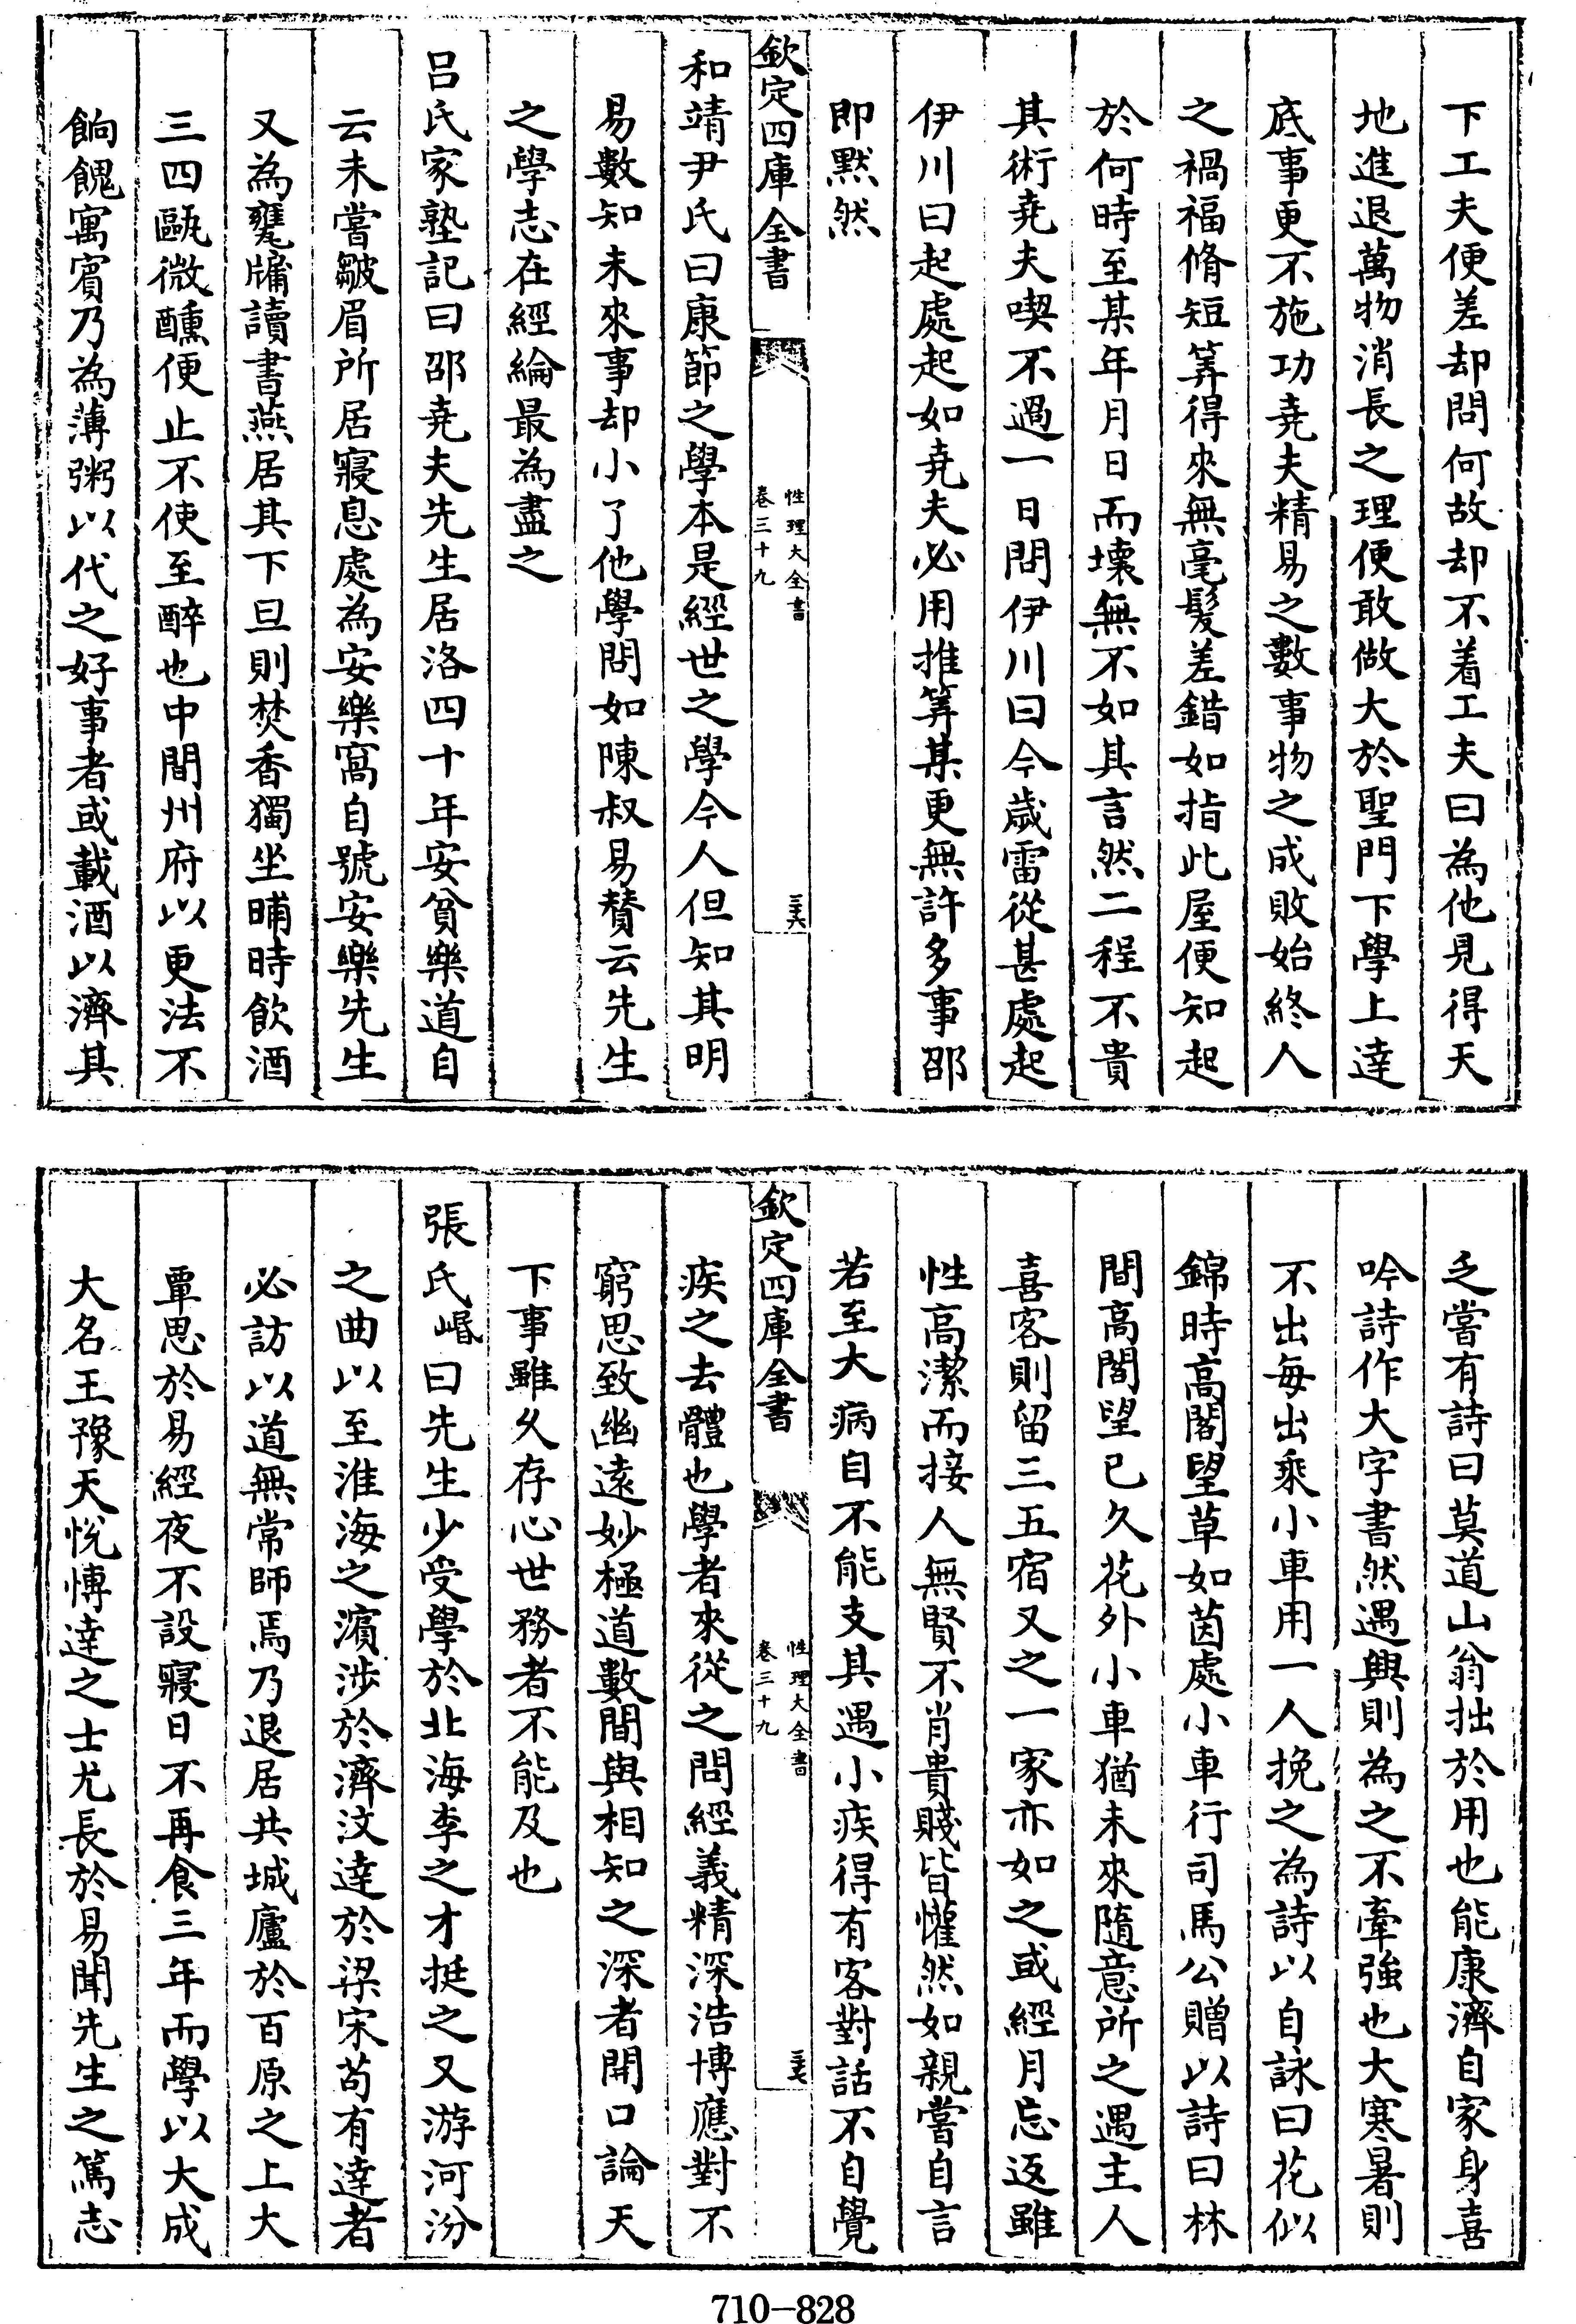 下工夫便差却問何故却不着工夫曰為他見得天
地進退萬物消長之理便敢做大於聖門下學上達
底事更不施功堯夫精易之數事物之成敗始終人
之禍福脩短筭得來無毫髪差錯如指此屋便知起
於何時至某年月日而壊無不如其言然二程不貴
其術堯夫喫不過一日問伊川曰今歲雷從甚處起
伊川曰起處起如堯夫必用推筭某更無許多事邵
即黙然
欽定四庫全書
性理大全書
卷三十九
三六
和靖尹氏曰康節之學本是經世之學今人但知其明
易數知未來事却小了他學問如陳叔易賛云先生
之學志在經綸最為盡之
吕氏家塾記曰邵堯夫先生居洛四十年安貧樂道自
云未嘗皺眉所居寢息處為安樂窩自號安樂先生
又為甕牖讀書燕居其下旦則焚香獨坐晡時飲酒
三四甌微醺便止不使至醉也中間州府以更法不
餉餽寓賓乃為薄粥以代之好事者或載酒以濟其
乏嘗有詩曰莫道山翁拙於用也能康濟自家身喜
吟詩作大字書然遇興則為之不牽強也大寒暑則
不出每出乘小車用一人挽之為詩以自詠曰花似
錦時高閣望草如茵處小車行司馬公贈以詩曰林
間高閣望已久花外小車猶未來隨意所之遇主人
喜客則留三五宿又之一家亦如之或經月忘返雖
性高潔而接人無賢不肖貴賤皆懽然如親嘗自言
若至大病自不能支其遇小疾得有客對話不自覺
欽定四庫全書
性理大全書
卷三十九
三七
疾之去體也學者來從之問經義精深浩博應對不
窮思致幽遠妙極道數間與相知之深者開口論天
下事雖久存心世務者不能及也
張氏㟭曰先生少受學於北海李之才挺之又游河汾
之曲以至淮海之濱涉於濟汶達於梁宋苟有達者
必訪以道無常師焉乃退居共城廬於百原之上大
覃思於易經夜不設寢日不再食三年而學以大成
大名王豫天悦博達之士尤長於易聞先生之篤志
710-828